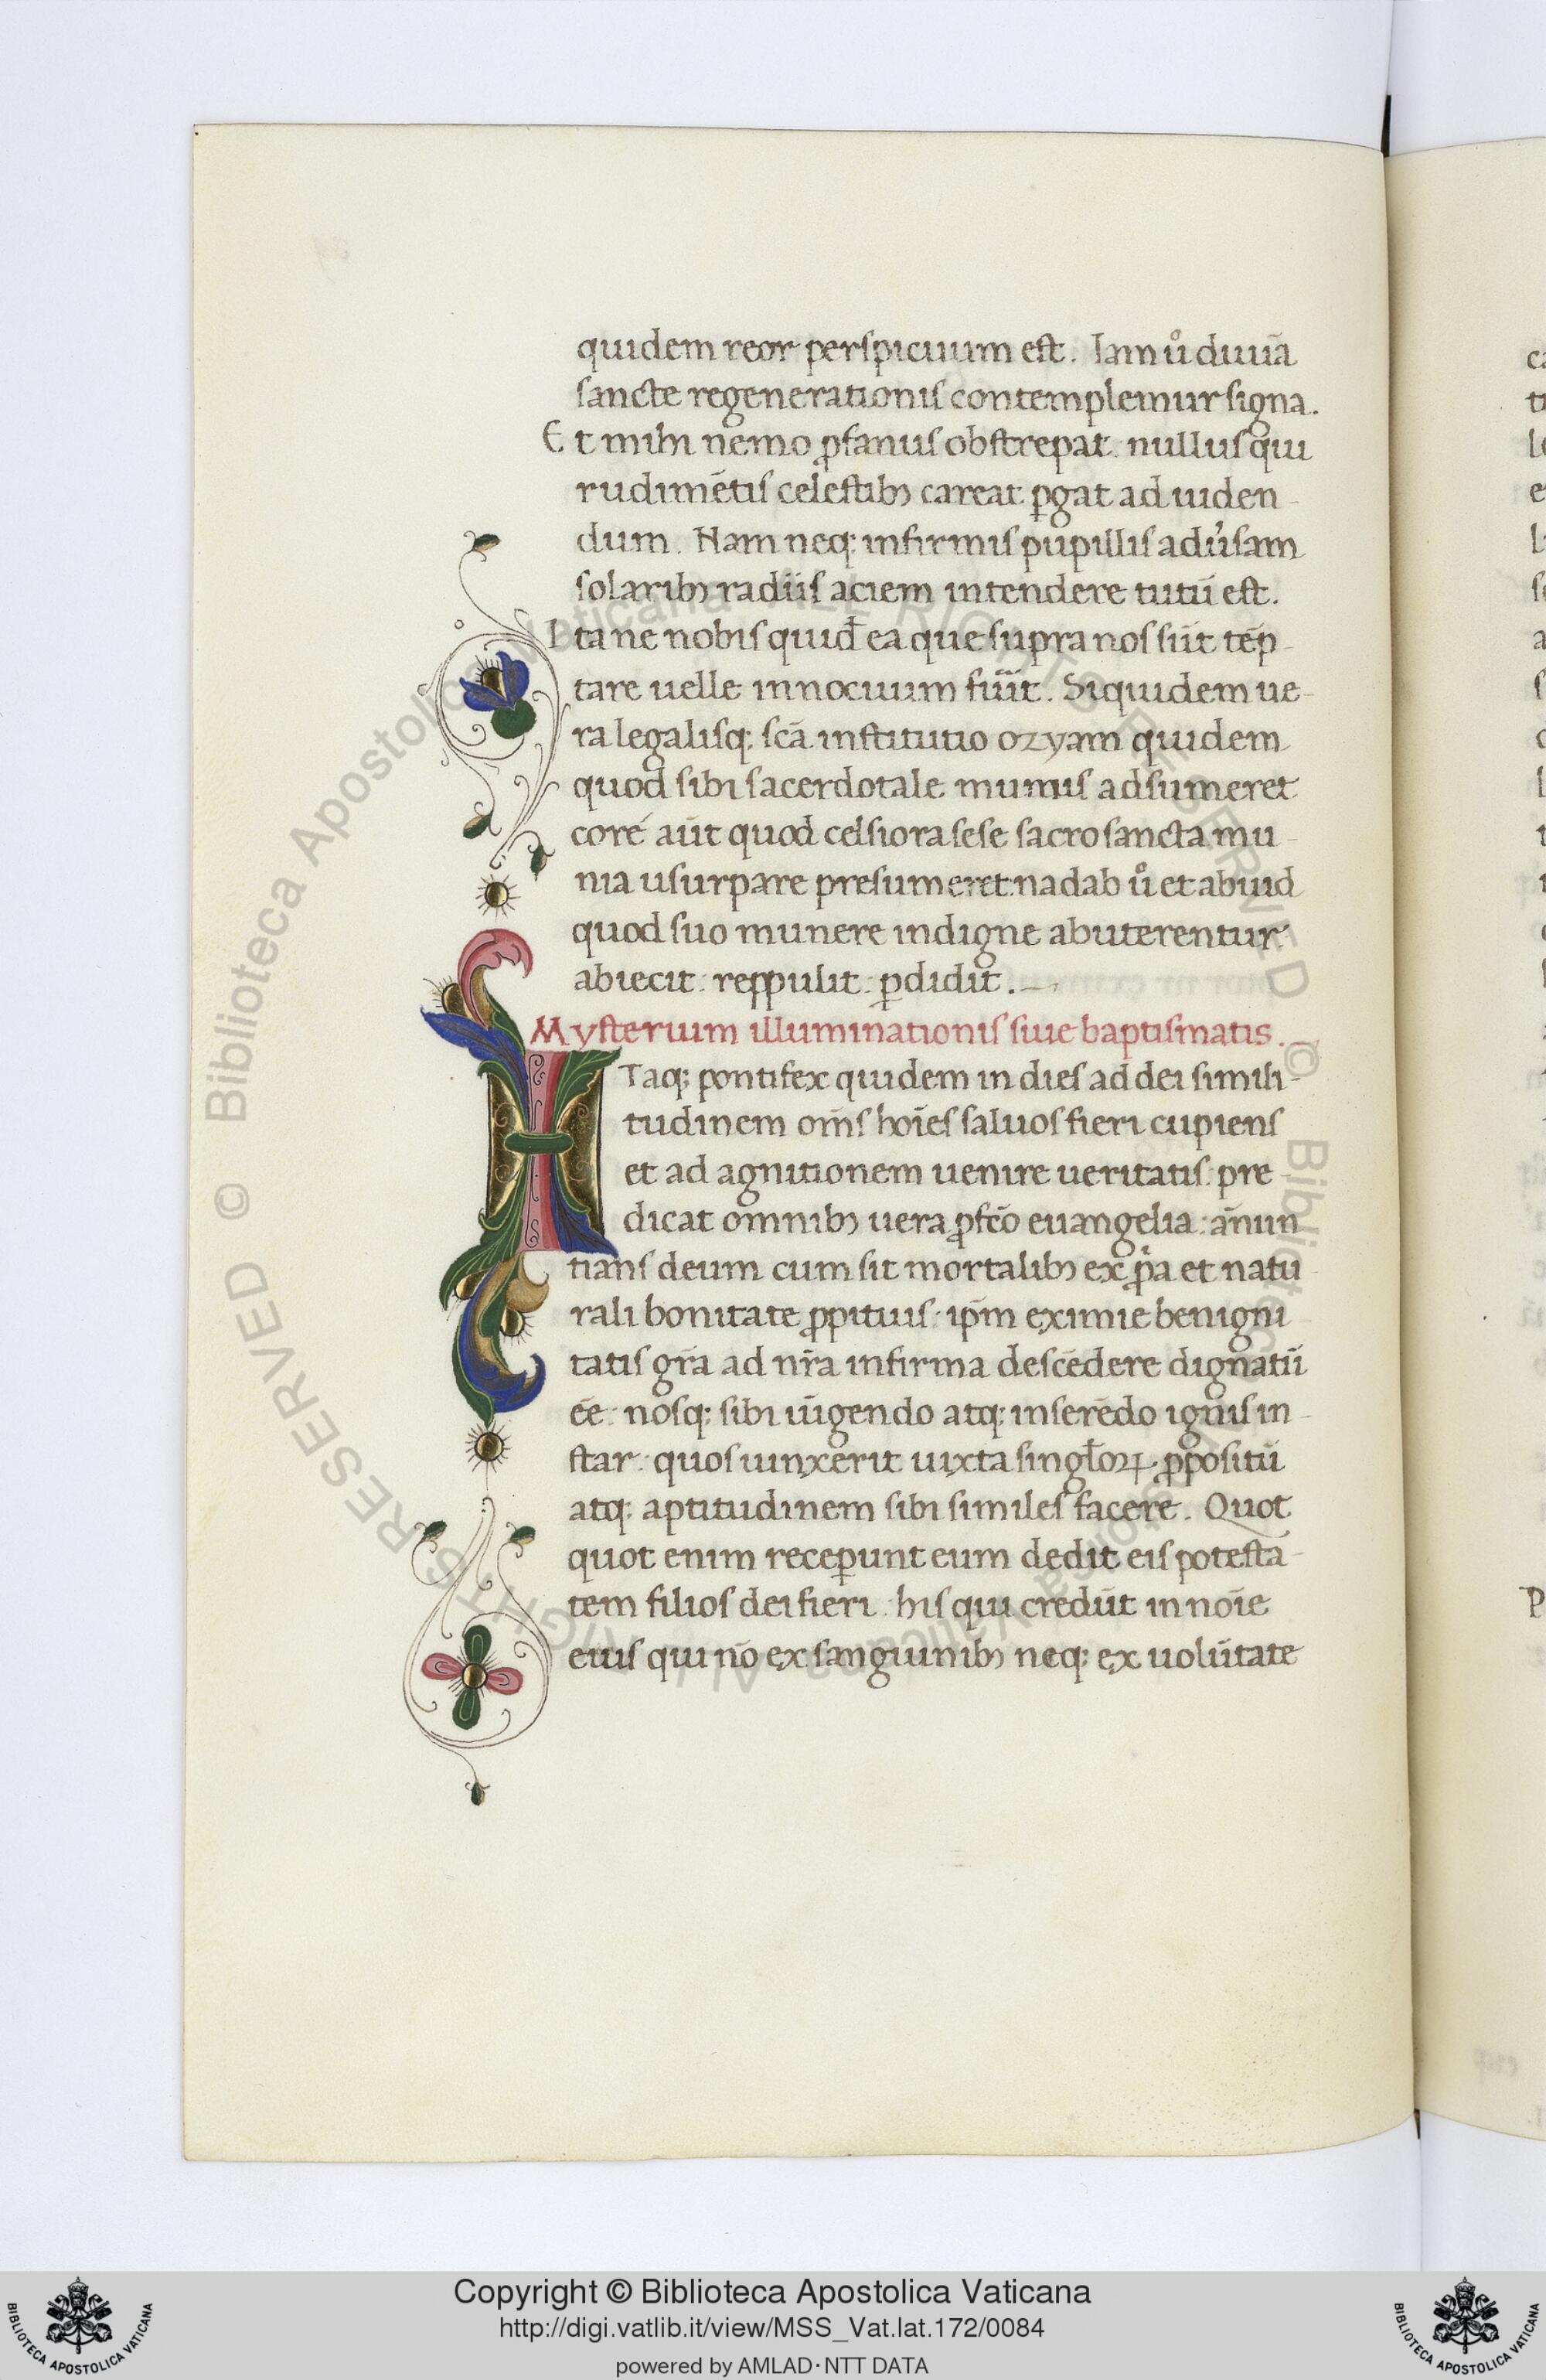 quidem reor perspicuum est. Iam uͦ diuinā
sancte regenerationis contemplemur signa.
Et mihi nemo ꝓfanus obstrepat: nullus qui
rudimētis celestibꝫ careat ꝑgat ad uiden-
dum. Nam neqꝫ infirmis pupillis aduʼsam
solaribꝫ radiis aciem intendere tutū est.
Ita ne nobis quid̄ ea que supra nos sūt tēp-
tare uelle innocuum fuīt. Siquidem ue-
ra legalisqꝫ scā institutio ozyam quidem
quod sibi sacerdotale munus adsumeret
coré aūt quod celsiora sese sacrosancta mu-
nia usurpare presumeret: nadab uͦ et abiud
quod suo munere indigne abuterentur
abiecit: reppulit: ꝑdidit.
Mysterium illuminationis siue baptismatis.
ITaqꝫ pontifex quidem in dies ad dei simili-
tudinem om̄s hoīes saluos fieri cupiens
et ad agnitionem uenire ueritatis: pre-
dicat omnibꝫ uera ꝓfcō euangelia: ānun-
tians deum cum sit mortalibꝫ ex ꝓͥa et natu-
rali bonitate ꝓpitius: ip̄m eximie benigni-
tatis gr̄a ad nr̄a infirma descēdere dignatū
eē: nosqꝫ sibi iūgendo atqꝫ inserēdo ignis in-
star: quos iunxerit iuxta singlōꝝ ꝓpositū
atqꝫ aptitudinem sibi similes facere. Quot
quot enim receꝑunt eum dedit eis potesta-
tem filios dei fieri: his qui credūt in noīe
eius qui nō ex sanguinibꝫ neqꝫ ex uolūtate
© Biblioteca Apostolica Vaticana ALL RIGHTS RESERVED
Copyright © Biblioteca Apostolica Vaticana
http://digi.vatlib.it/view/MSS_Vat.lat.172/0084
powered by AMLAD·NTT DATA
BIBLIOTECA APOSTOLICA VATICANA
BIBLIOTECA APOSTOLICA VATICANA